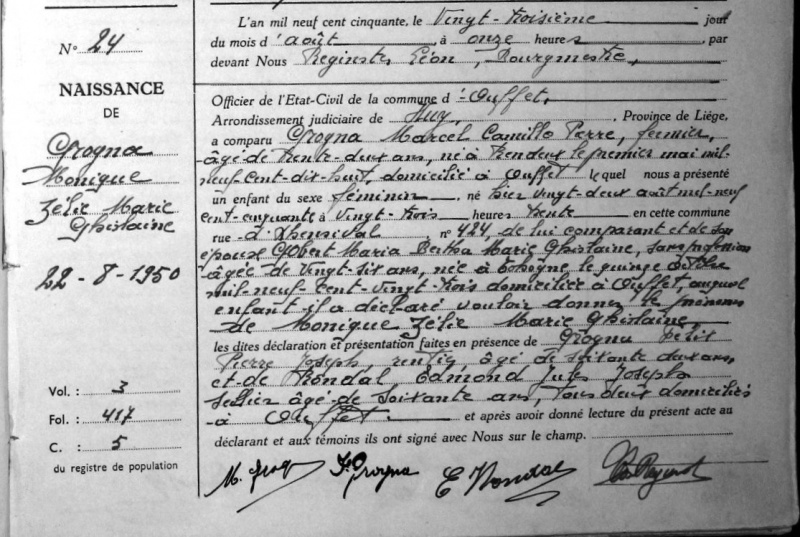 N° 24
NAISSANCE
DE
Grogna
Monique
Zélie Marie
Ghislaine
22-8-1950
Vol. : 3
Fol. : 417
C. : 5
du registre de population
L'an mil neuf cent cinquante, le Vingt-troisième jour
du mois d'août à onze heures, par
devant Nous Reginster Léon, Bourgmestre,
Officier de l'Etat-Civil de la commune d'Ouffet,
Arrondissement judiciaire de Huy, Province de Liège,
a comparu Grogna Marcel Camille Pierre, fermier,
âgé de trente-deux ans, né à Rendeux le premier mai mil-
neuf-cent-dix-huit, domicilié à Ouffet lequel nous a présenté
un enfant du sexe féminin, né hier vingt-deux août mil-neuf
cent-cinquante à vingt-trois heures trente en cette commune
rue d'Xhenceval n° 424, de lui comparant et de son
épouse Maria Bertha Marie Ghislaine, sans profession
âgée de vingt-six ans, née à le quinze octobre
mil-neuf-cent-vingt-trois domiciliée à Ouffet, auquel
enfant il a déclaré vouloir donner les prénoms
de Monique Zélie Marie Ghislaine,
les dites déclaration et présentation faites en présence de Grogna Petit
Pierre Joseph, rentier, âgé de soixante deux ans,
et de Rondal, Edmond Jules Joseph
sellier âgé de soixante ans, tous deux domiciliés
à Ouffet et après avoir donné lecture du présent acte au
déclarant et aux témoins ils ont signé avec Nous sur le champ.
M. Grogna J. Grogna E Rondal